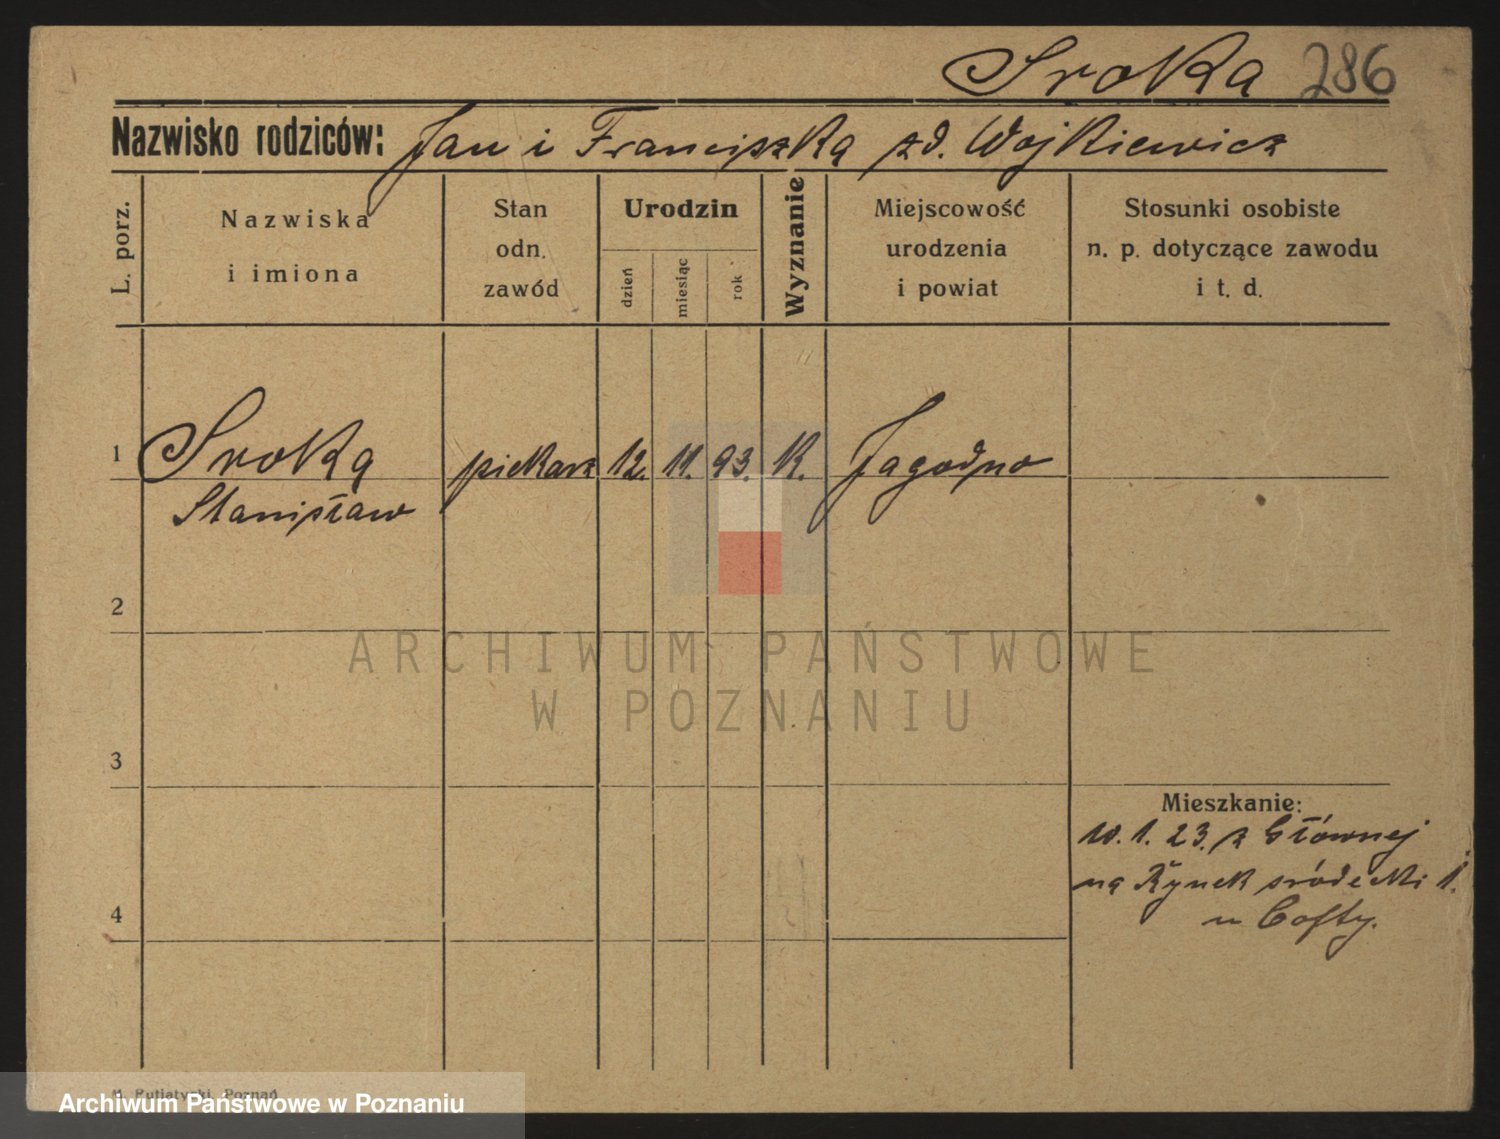 Sroka 286
Nazwisko rodziców: Jan i Franciszka zd. Wojkiewicz
L. porz.
Nazwiska
i imiona
Stan
odn.
zawód
Urodzin
dzień
miesiąc
rok
Wyznanie
Miejscowość
urodzenia
i powiat
Stosunki osobiste
n. p. dotyczące zawodu
i t. d.
1 Sroka piekarz 12. 11. 93. K. Jagodno
Stanisław
2
ARCHIWUM PAŃSTWOWE
W POZNANIU
3
Mieszkanie:
10. 1. 23. z Głównej
na Rynek śródecki 1.
4
u Cofty.
Putiatycki, Poznań
Archiwum Państwowe w Poznaniu